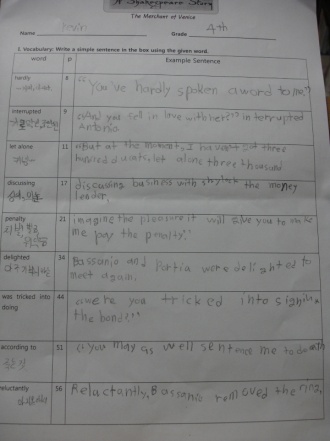 A Shakespeare Story
The Merchant of Venice
Name Kevin Grade 4th
I. Vocabulary: Write a simple sentence in the box using the given word.
word p Example Sentence
hardly 8 "You've hardly spoken a word to me."
interrupted 9 "And you fell in love with her?" interrupted
Antonio.
let alone 11 "But at the moment, I haven't got three
hundred ducats, let alone three thousand
discussing 17 discussing business with Shylock the money
leader.
penalty 21 imagine the pleasure it will give you to make
me pay the penalty."
delighted 34 Bassanio and Portia were delighted to
meet again.
was tricked into doing 44 "were you tricked into signing
the bond?"
according to 51 "you may as well sentence me to death
reluctantly 56 Reluctantly, Bassanio removed the ring.